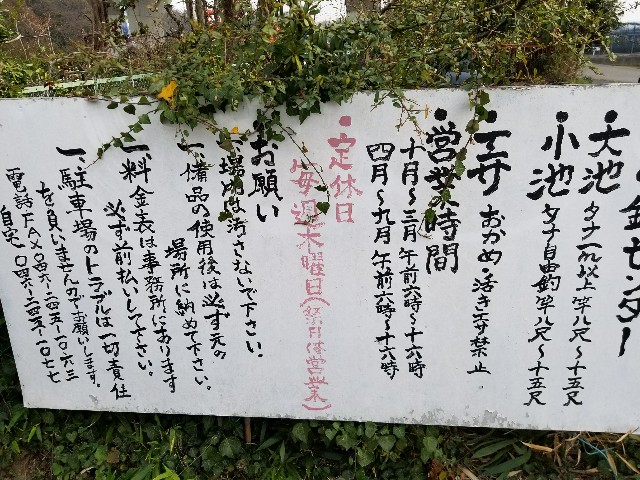 金センター
・大池 タナ一m以上 竿八尺〜十五尺
・小池 タナ自由釣 竿八尺〜十五尺
・エサ おかめ・活きエサ禁止
・営業時間
十月〜三月 午前六時〜十六時
四月〜九月 午前六時〜十六時
・定休日
毎週木曜日(祭日は営業)
お願い
一、場所は汚さないで下さい。
一、備品の使用後は必ず元の
場所に納めて下さい。
一、料金表は事務所にあります
必ず前払いして下さい。
一、駐車場のトラブルは一切責任
を負いませんのでお願いします。
電話FAX〇四六-二四五-一〇六三
自宅 〇四六-二四五-一〇七七